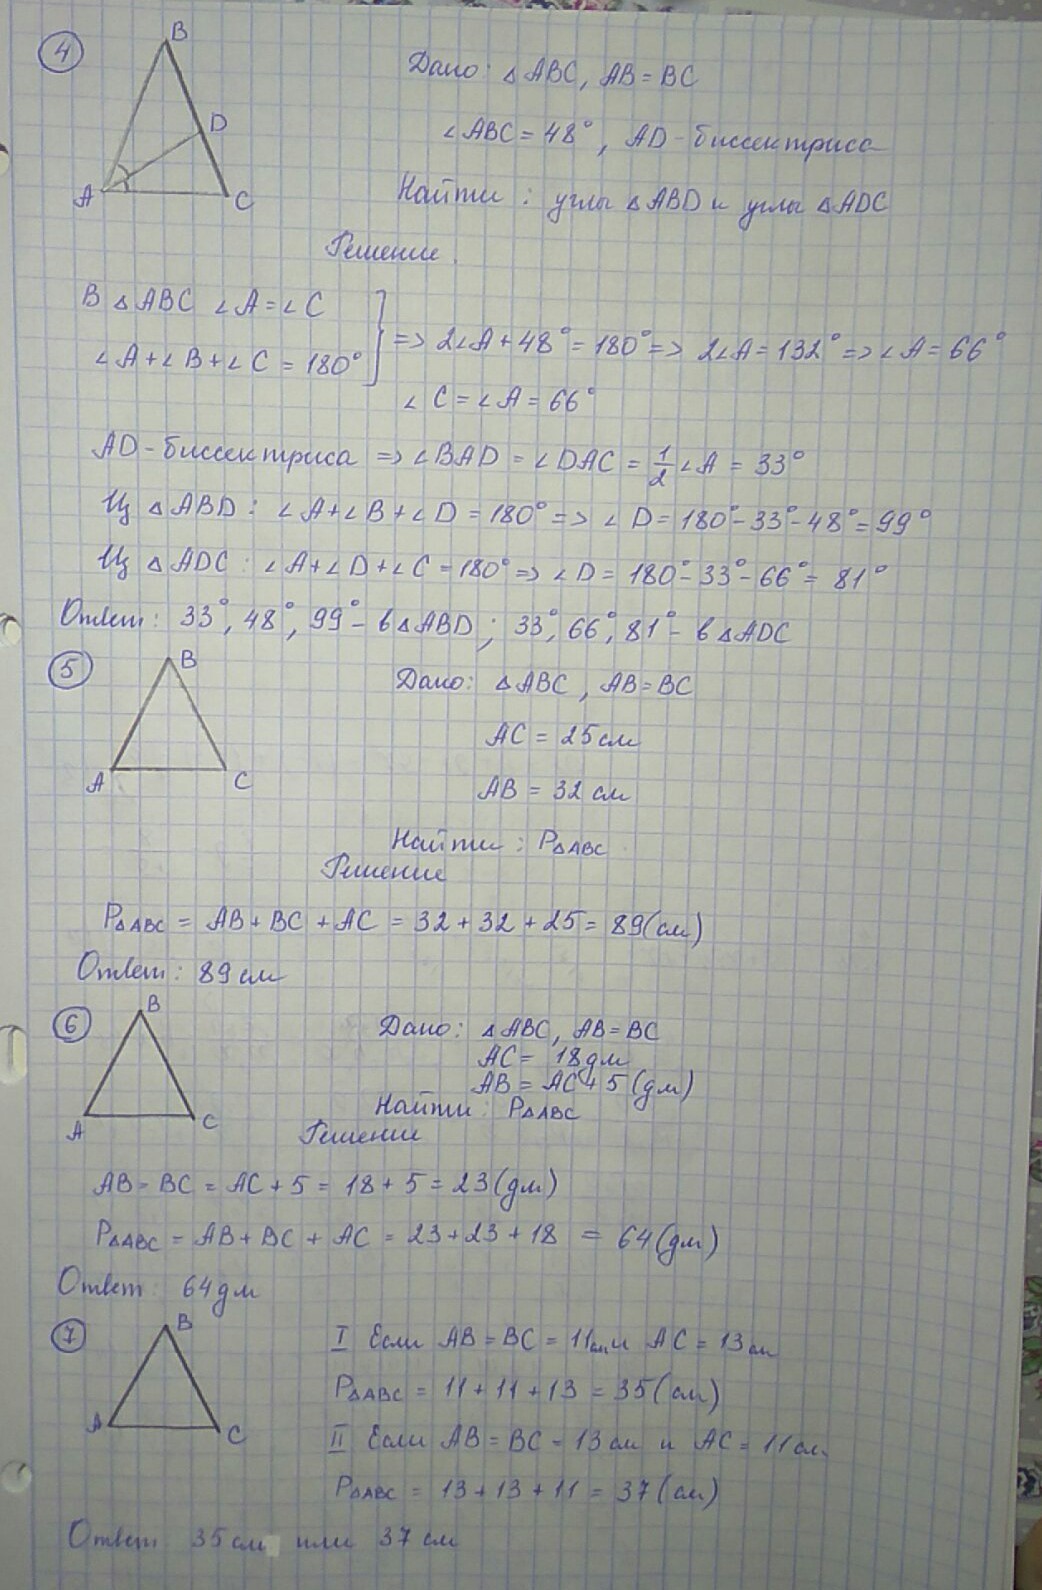 4
B
D
A
C
Дано: △ABC, AB = BC
∠ABC = 48°, AD - биссектриса
Найти: углы △ABD и углы △ADC
Решение.
В △ABC ∠A = ∠C
∠A + ∠B + ∠C = 180°
} => 2∠A + 48° = 180° => 2∠A = 132° => ∠A = 66°
∠C = ∠A = 66°
AD - биссектриса => ∠BAD = ∠DAC = 1/2 ∠A = 33°
Из △ABD: ∠A + ∠B + ∠D = 180° => ∠D = 180° - 33° - 48° = 99°
Из △ADC: ∠A + ∠D + ∠C = 180° => ∠D = 180° - 33° - 66° = 81°
Ответ: 33°, 48°, 99° - в △ABD; 33°, 66°, 81° - в △ADC
5
B
A
C
Дано: △ABC, AB = BC
AC = 25 см
AB = 32 см
Найти: P△ABC
Решение
P△ABC = AB + BC + AC = 32 + 32 + 25 = 89 (см)
Ответ: 89 см
6
B
A
C
Дано: △ABC, AB = BC
AC = 18 дм
AB = AC + 5 (дм)
Найти: P△ABC
Решение
AB = BC = AC + 5 = 18 + 5 = 23 (дм)
P△ABC = AB + BC + AC = 23 + 23 + 18 = 64 (дм)
Ответ: 64 дм
7
B
A
C
I Если AB = BC = 11 см и AC = 13 см
P△ABC = 11 + 11 + 13 = 35 (см)
II Если AB = BC = 13 см и AC = 11 см.
P△ABC = 13 + 13 + 11 = 37 (см)
Ответ 35 см или 37 см